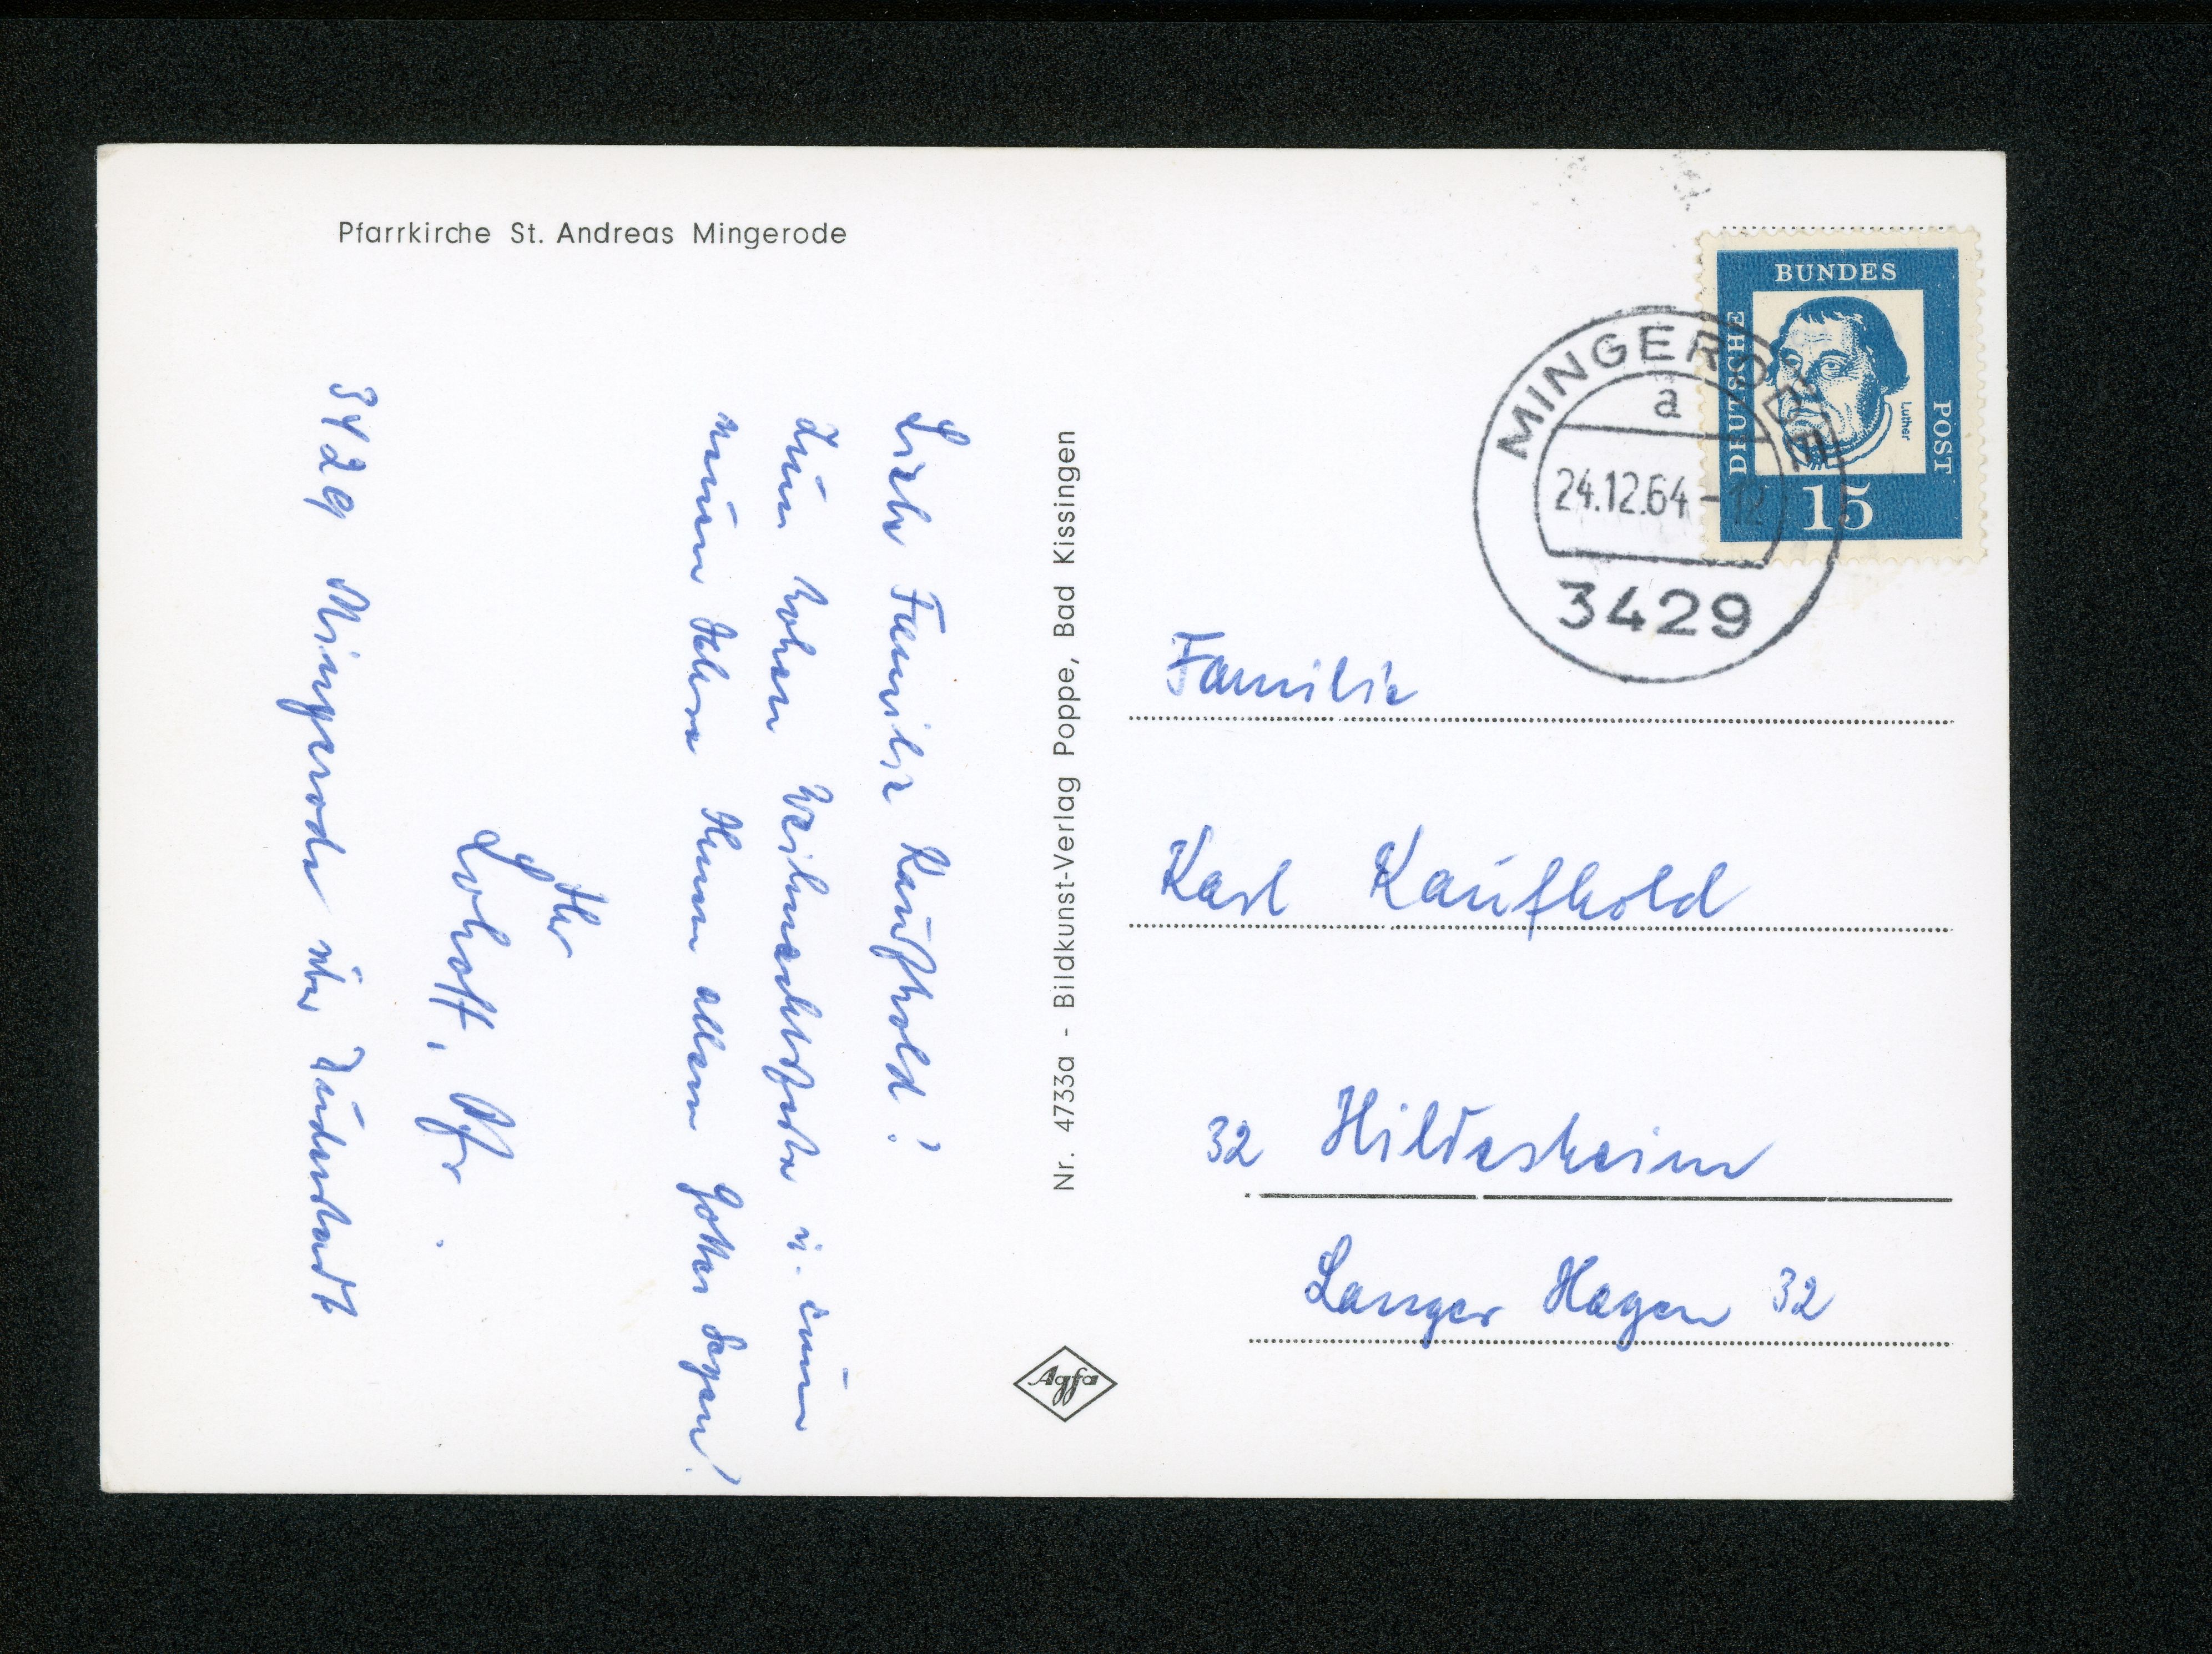 Pfarrkirche St. Andreas Mingerode
Liebe Familie Kaufhold!
Zum hohen Weihnachtsfeste u. zum
neuen Jahre Ihnen allen Gottes Segen!
Ihr
Lohott, Pfr.
3429 Mingerode über Duderstadt
Nr. 4733a - Bildkunst-Verlag Poppe, Bad Kissingen
Agfa
BUNDES
DEUTSCHE
POST
Luther
15
MINGERODE
a
24.12.64-12
3429
Familie
Karl Kaufhold
32 Hildesheim
Langer Hagen 32